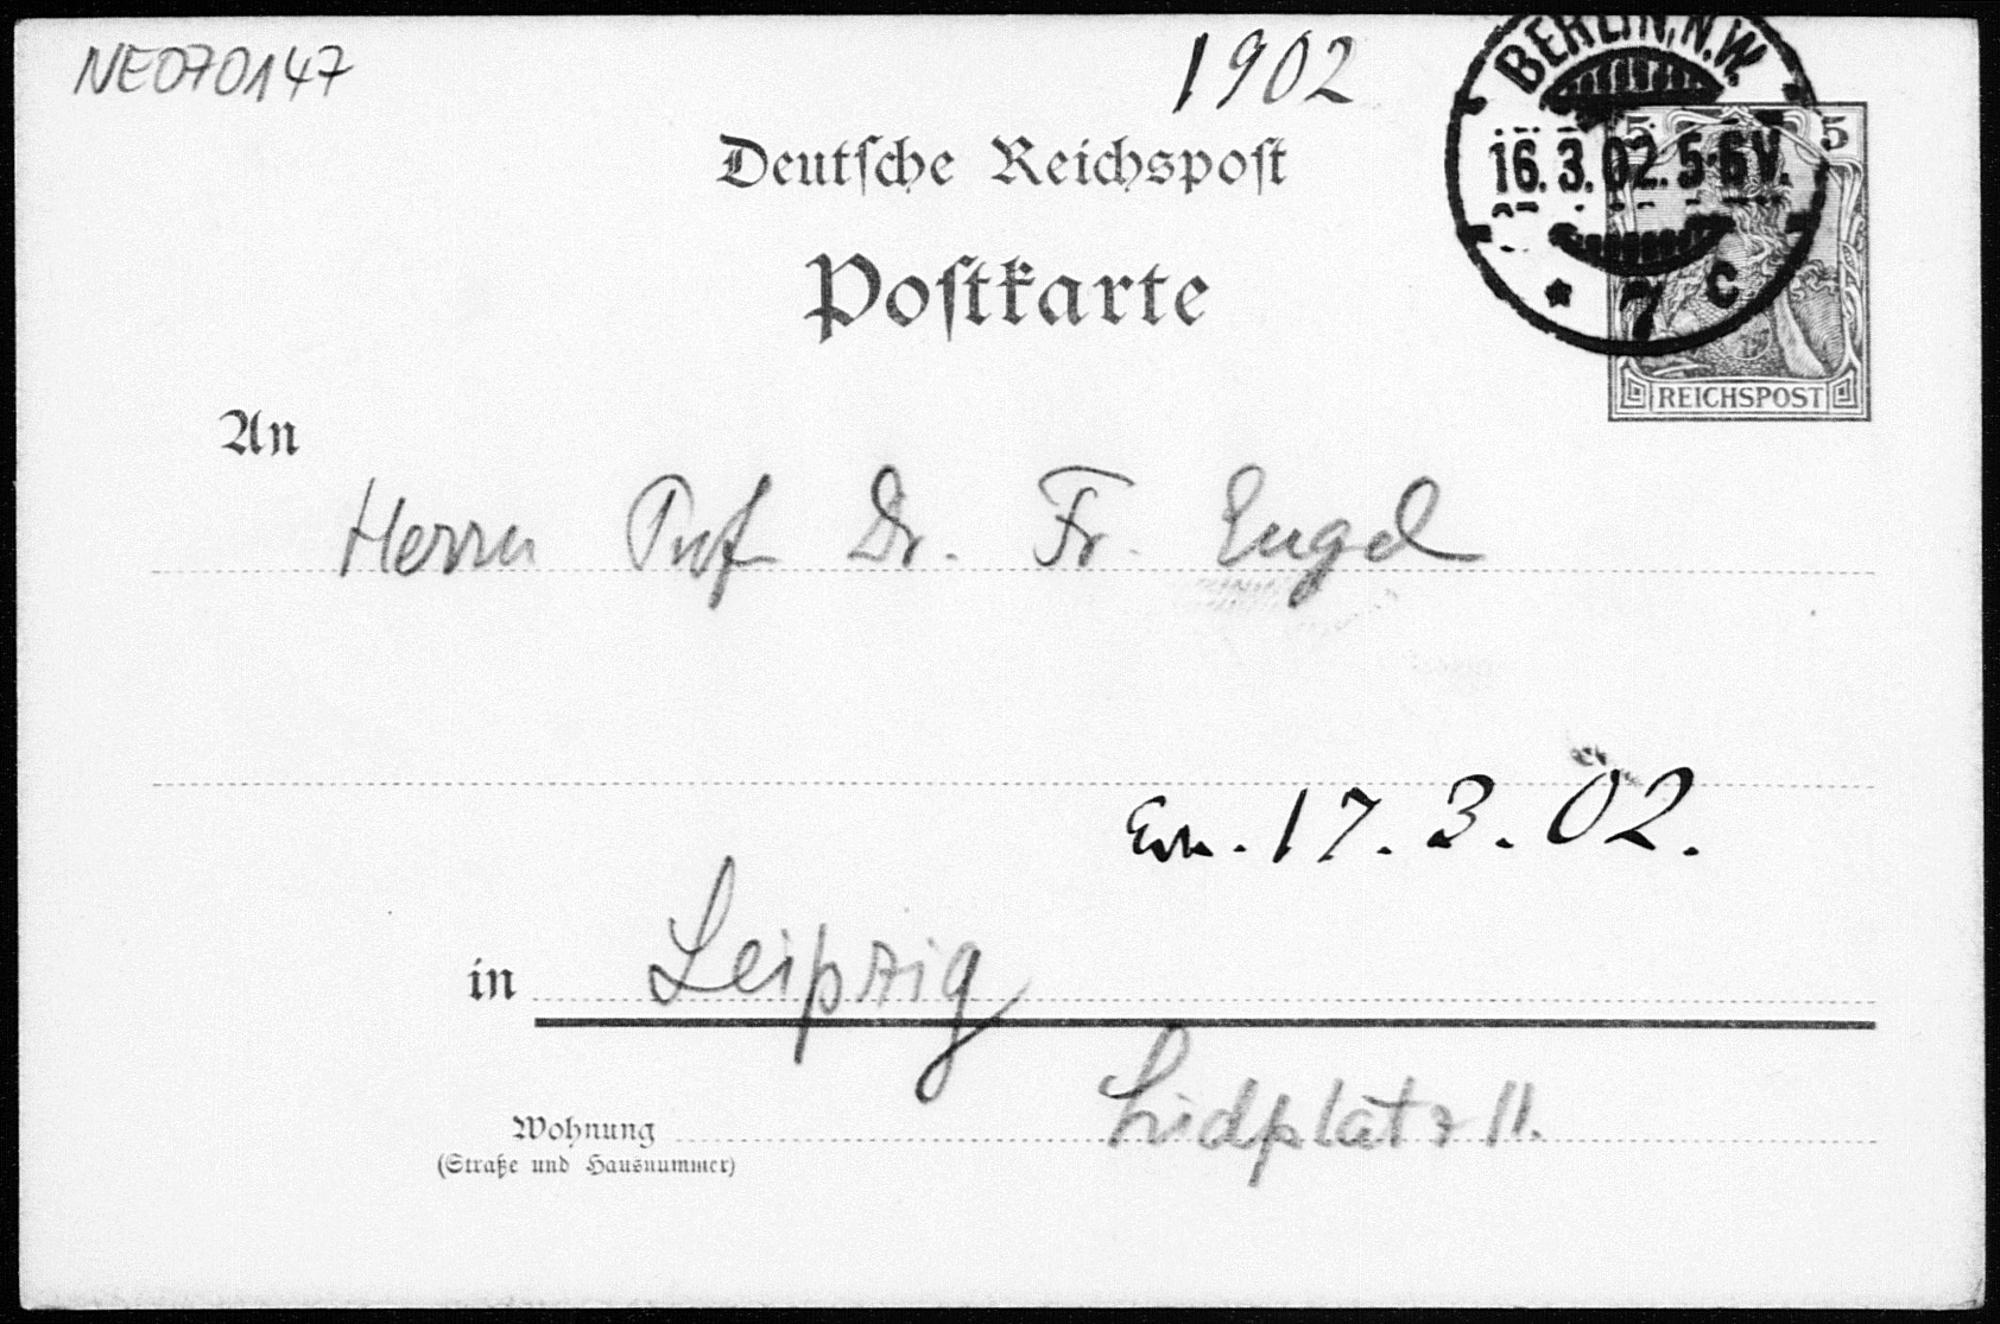 NE070147
1902
BERLIN, N.W.
16.3.02.5-6V.
* 7 c
5 5
REICHSPOST
Deutsche Reichspost
Postkarte
An
Herrn Prof Dr. Fr. Engel
17.3.02.
in Leipzig
Wohnung
(Straße und Hausnummer)
Lidplatz 11.